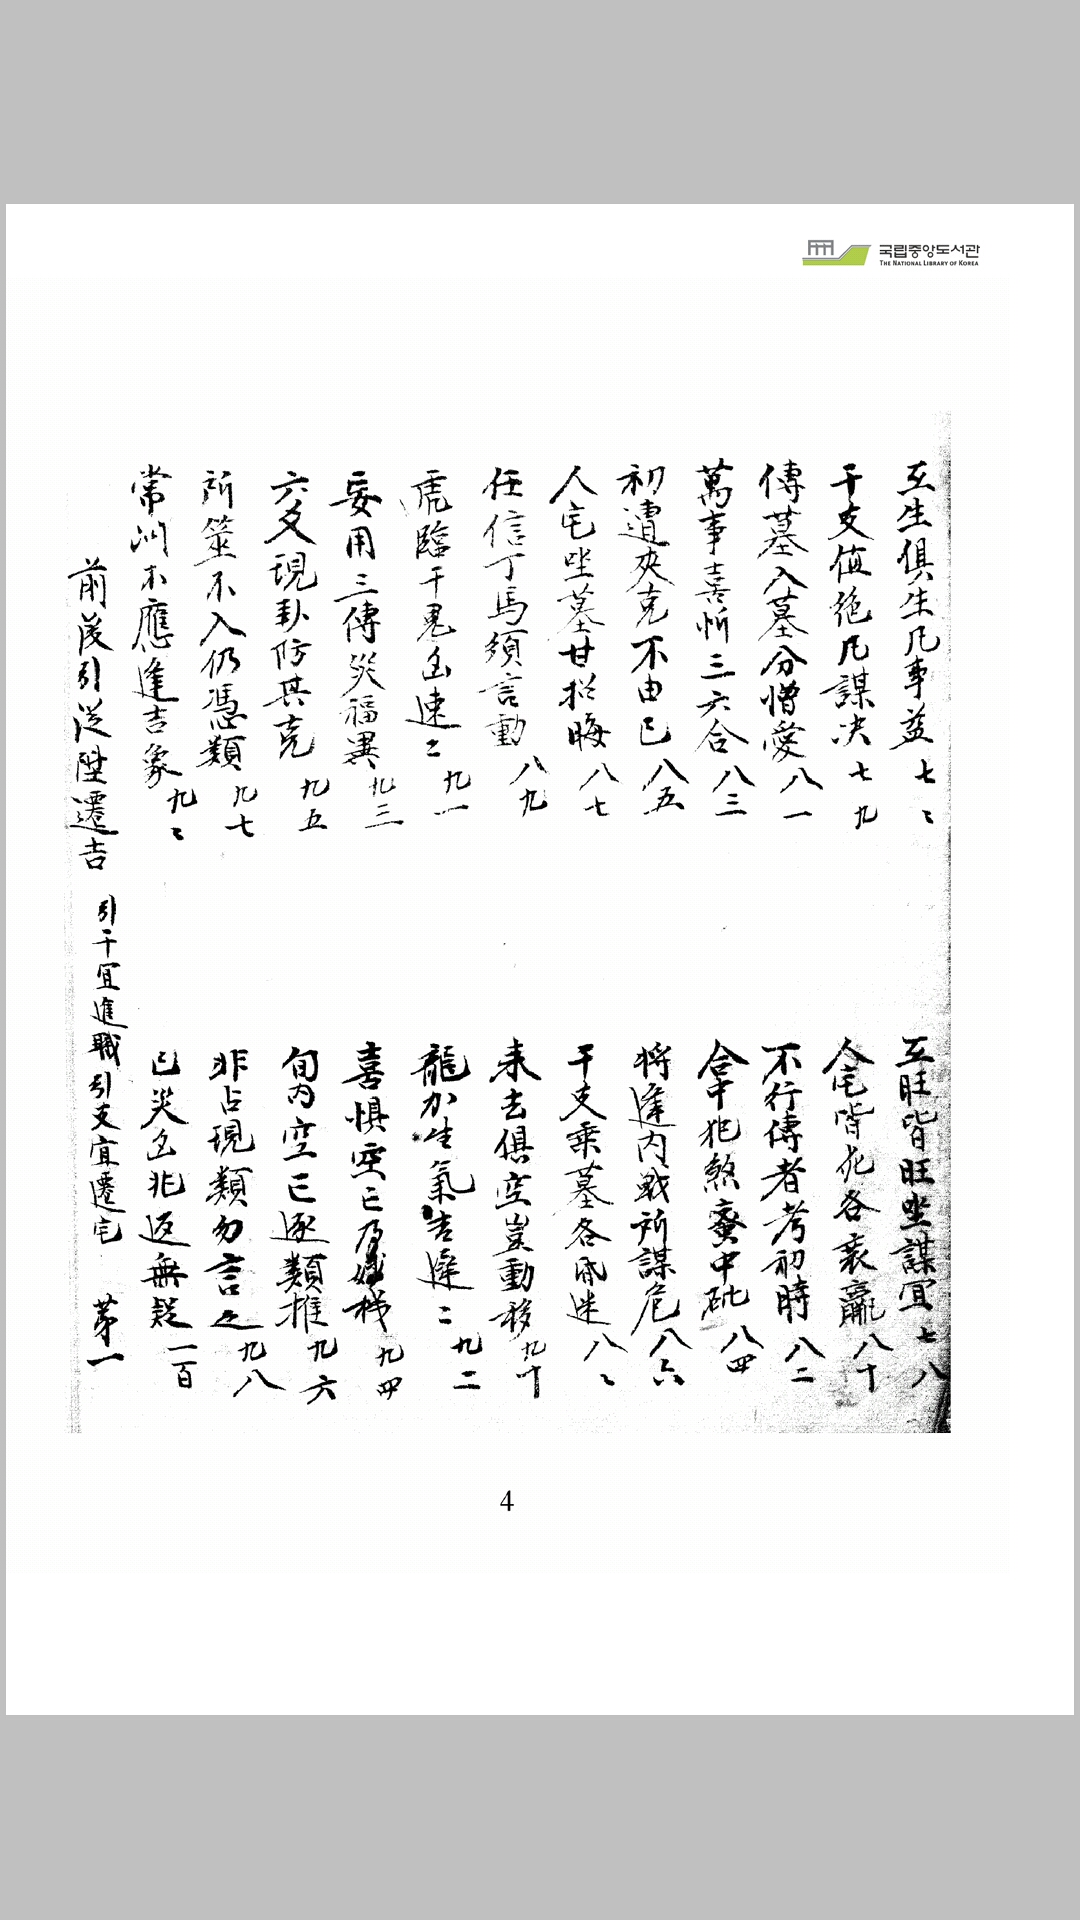 국립중앙도서관
THE NATIONAL LIBRARY OF KOREA
互生俱生凡事益 七七
互旺皆旺坐謀宜 七八
干支值絶凡謀决 七九
人宅皆死各衰羸 八十
傳墓入墓分憎愛 八一
不行傳者考初時 八二
萬事喜忻三六合 八三
合中犯煞蜜中砒 八四
初遭夾克不由己 八五
將逢內戰所謀危 八六
人宅坐墓甘招晦 八七
干支乘墓各昏迷 八八
任信丁馬須言動 八九
來去俱空豈動移 九十
虎臨干鬼凶速速 九一
龍加生氣吉遲遲 九二
妄用三傳災福異 九三
喜懼空亡乃妙機 九四
六爻現卦防其克 九五
旬內空亡逐類推 九六
所筮不入仍憑類 九七
非占現類勿言之 九八
常問不應逢吉象 九九
已災凶非返無疑 一百
前後引從陞遷吉 引干宜進職引支宜遷宅 第一
4